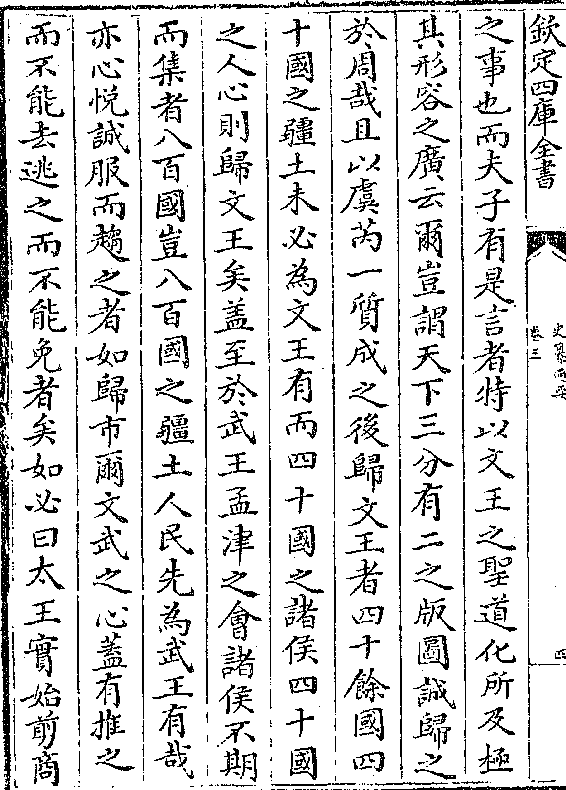 欽定四庫全書
卷三
四
之事也而夫子有是言者特以文王之聖道化所及極
其形容之廣云爾豈謂天下三分有二之版圖誠歸之
於周哉且以虞芮一質成之後歸文王者四十餘國四
十國之疆土未必為文王有而四十國之諸侯四十國
之人心則歸文王矣蓋至於武王孟津之會諸侯不期
而集者八百國豈八百國之疆土人民先為武王有哉
亦心悅誠服而趨之者如歸市爾文武之心蓋有推之
而不能去逃之而不能免者矣如必曰太王實始剪商